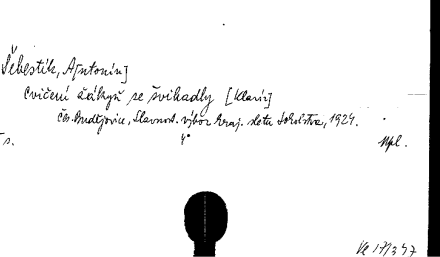 Šebestík, A[ntonín]
Cvičení žákyň se švihadly [Klavír]
Čes. Budějovice, Slavnost. výbor kraj. sletu Sokolstva, 1924.
s. 4° Mpl.
Ve 17/347